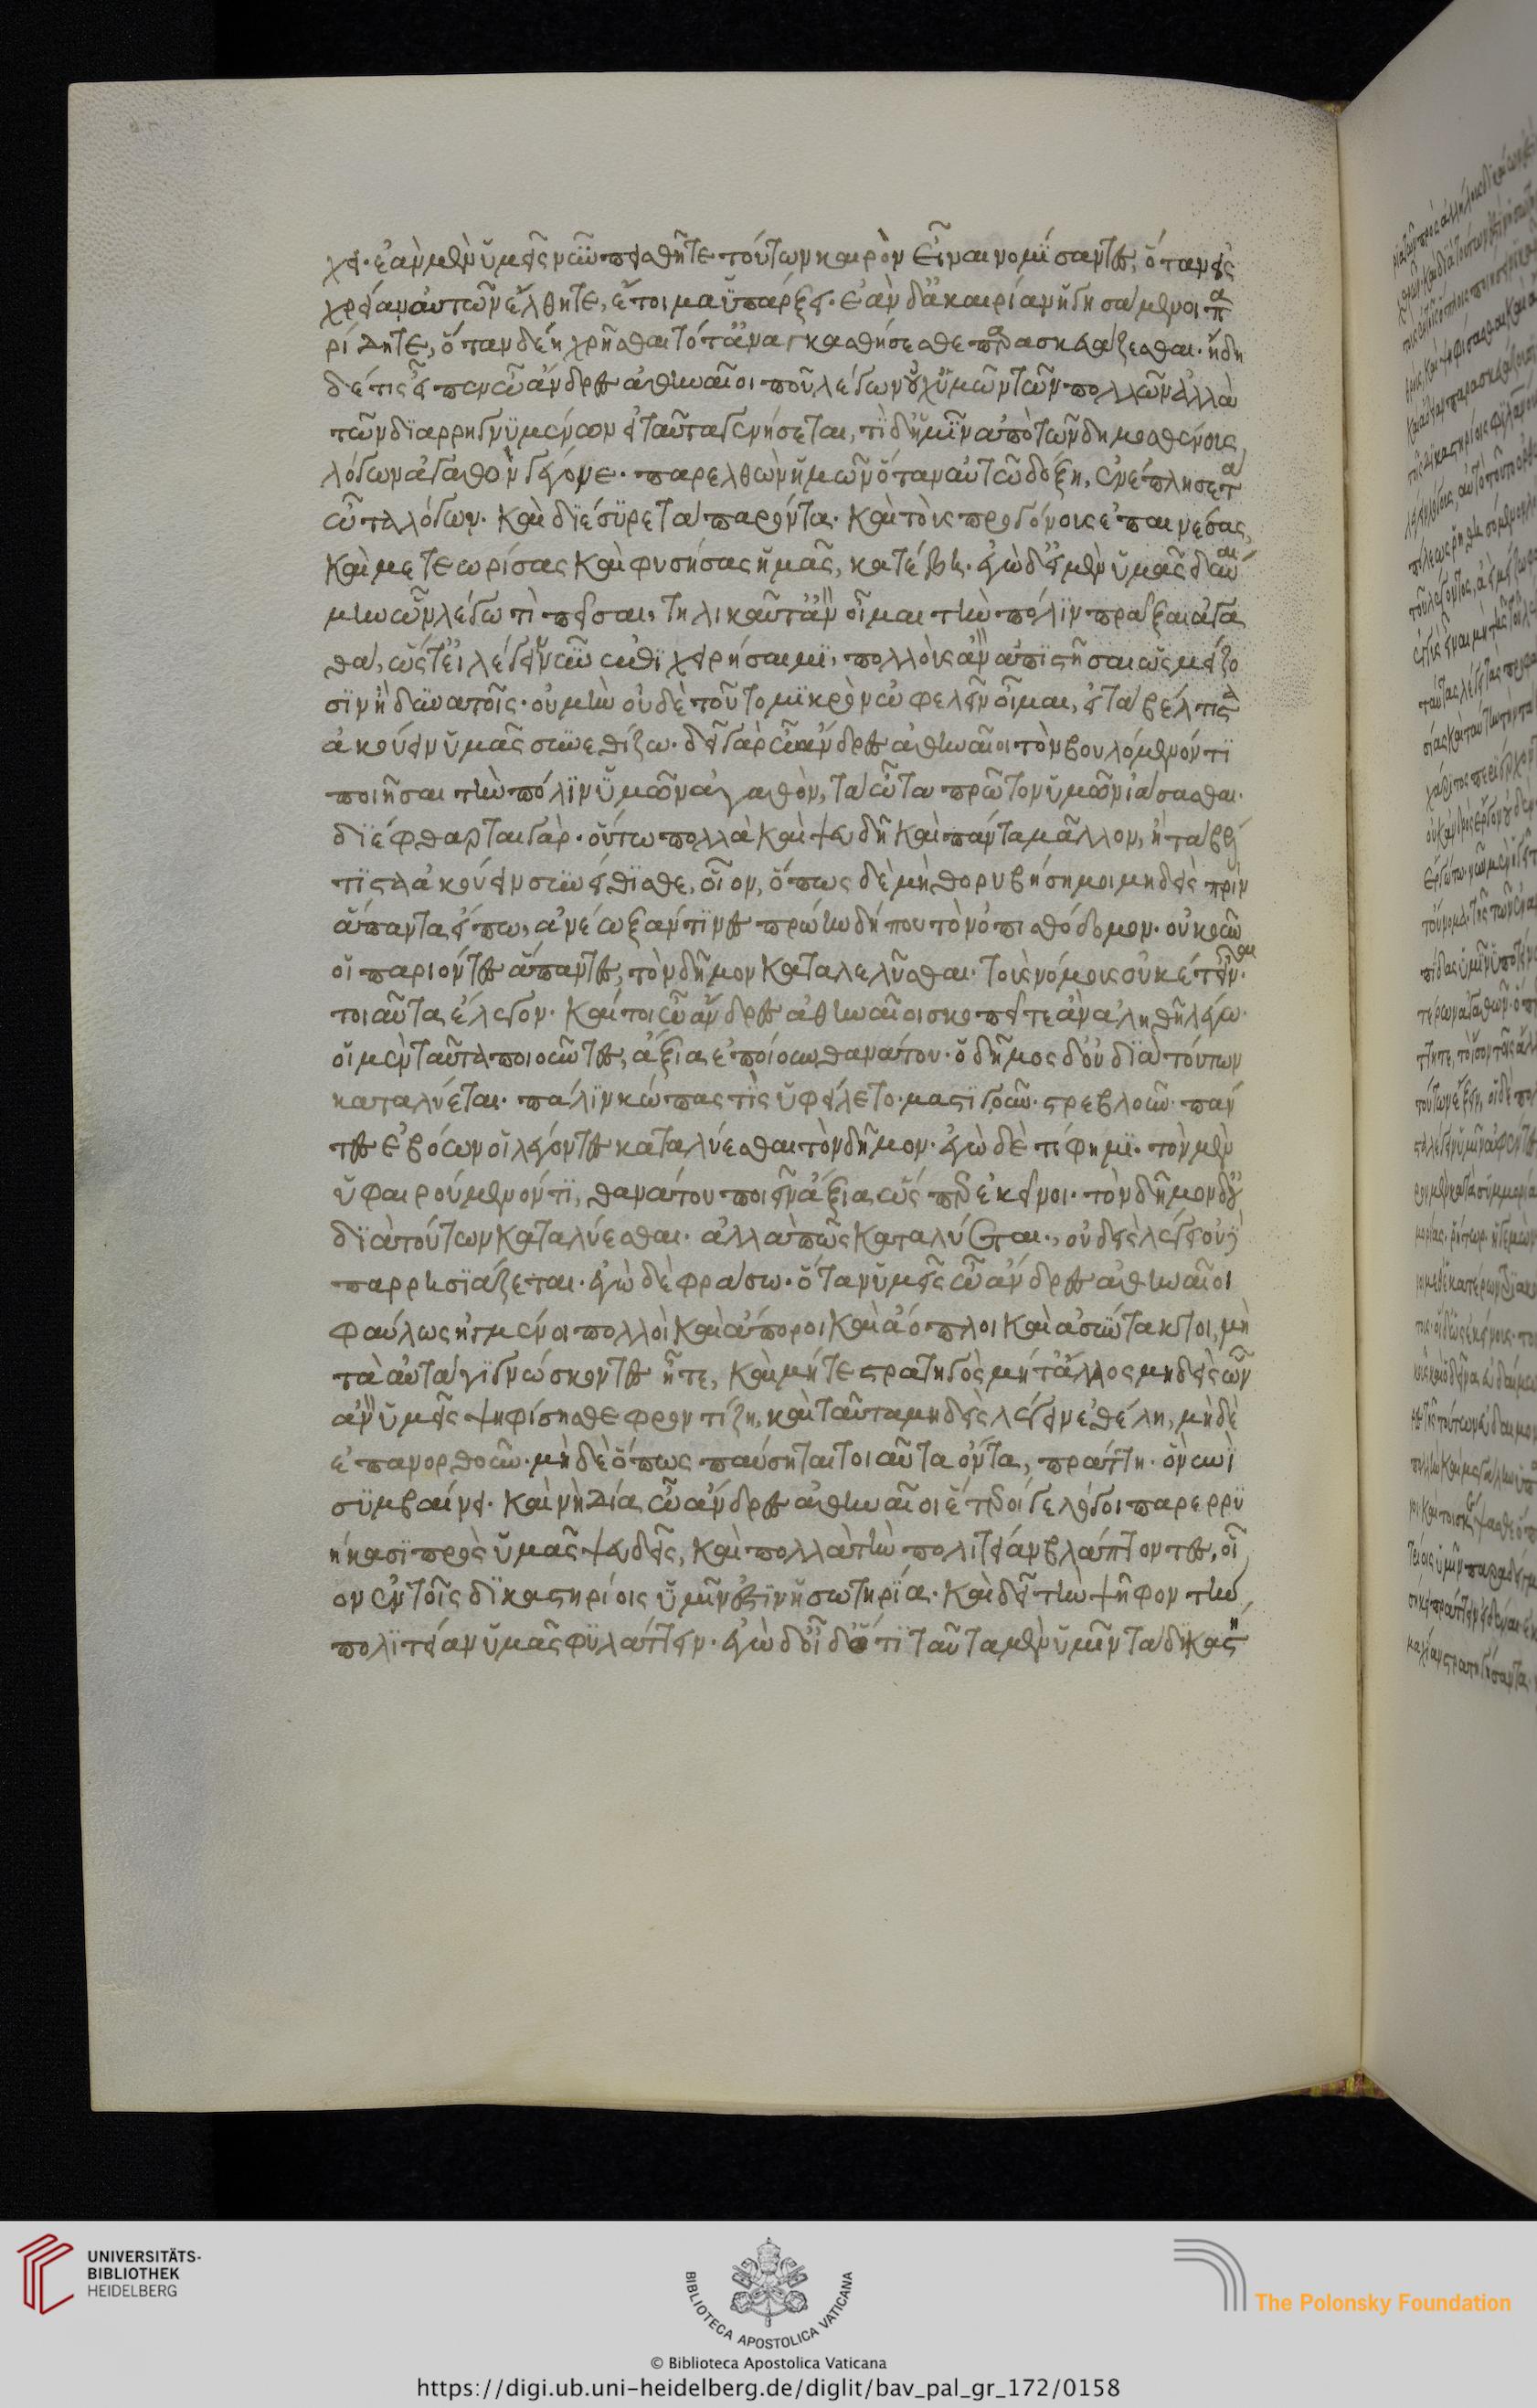 χει· ἐὰν μὲν ὑμεῖς νῦν πεισθῆτε τούτων καιρὸν εἶναι νομίσαντες, ὅταν εἰς
χρείαν αὐτῶν ἔλθητε, ἕτοιμα ὑπάρξει· ἐὰν δ' ἀκαιρίαν ἡγησάμενοι πα
ρίδητε, ὅταν δέῃ χρῆσθαι τότ' ἀναγκασθήσεσθε παρασκευάζεσθαι· ἤδη
δέ τις εἶπεν ὦ ἄνδρες ἀθηναῖοι που λέγων οὐχ ὑμῶν τῶν πολλῶν ἀλλὰ
τῶν διαρρηγνυμένων εἰ ταῦτα γενήσεται, τί δ' ἡμῖν ἀπὸ τῶν δημοσθένους
λόγων ἀγαθὸν γέγονε· παρελθὼν ἡμῶν ὅταν αὐτῶ δόξῃ, ἐνέπλησε τὰ
ὦτα λόγων· καὶ διέσυρε τὰ παρόντα· καὶ τοὺς προγόνους ἐπαινέσας,
καὶ μετεωρίσας καὶ φυσήσας ἡμᾶς, κατέβη· ἐγὼ δ' εἰ μὲν ὑμᾶς δυναί
μην ὧν λέγω τι πεῖσαι, τηλικαῦτ' ἂν οἶμαι τὴν πόλιν πρᾶξαι ἀγα
θά, ὥστ' εἰ λέγειν νῦν ἐπιχειρήσαιμι, πολλοὺς ἂν ἀπιστῆσαι ὡς μείζο
σιν ἢ δυνατοῖς· οὐ μὴν οὐδὲ τοῦτο μικρὸν ὠφελεῖν οἶμαι, εἰ τὰ βέλτιστα
ἀκούειν ὑμᾶς συνεθίζω· δεῖ γὰρ ὦ ἄνδρες ἀθηναῖοι τὸν βουλόμενόν τι
ποιῆσαι τὴν πόλιν ὑμῶν ἀγαθὸν, τὰ ὦτα πρῶτον ὑμῶν ἰάσασθαι·
διέφθαρται γάρ· οὕτω πολλὰ καὶ ψευδῆ καὶ πάντα μᾶλλον, ἢ τὰ βέλ
τιστα ἀκούειν συνείθισθε, οἷον, ὅπως δὲ μὴ θορυβήσῃ μοι μηδεὶς πρὶν
ἅπαντα εἴπω, ἀνέωξάν τινες πρώην δήπου τὸν ὀπισθόδομον· οὐκοῦν
οἱ παριόντες ἅπαντες, τὸν δῆμον καταλελῦσθαι· τοὺς νόμους οὐκέτ' εἶναι·
τοιαῦτα ἔλεγον· καίτοι ὦ ἄνδρες ἀθηναῖοι σκοπεῖτε ἂν ἀληθῆ λέγω·
οἱ μὲν ταῦτα ποιοῦντες, ἄξια ἐποίουν θανάτου· ὁ δῆμος δ' οὐ διὰ τούτων
καταλύεται· πάλιν κώπας τις ὑφείλετο· μαστιγοῦν· στρεβλοῦν· πάν
τες ἐβόων οἱ λέγοντες καταλύεσθαι τὸν δῆμον· ἐγὼ δὲ τί φημι· τὸν μὲν
ὑφαιρούμενόν τι, θανάτου ποιεῖν ἄξια ὥσπερ ἐκεῖνοι· τὸν δῆμον δ' οὐ
διὰ τούτων καταλύεσθαι· ἀλλὰ πῶς καταλύεται., οὐδεὶς λέγει οὐδὲ
παρρησιάζεται· ἐγὼ δὲ φράσω· ὅταν ὑμεῖς ὦ ἄνδρες ἀθηναῖοι
φαύλως ἠγμένοι πολλοὶ καὶ ἄποροι καὶ ἄοπλοι καὶ ἀσύντακτοι, μὴ
τὰ αὐτὰ γιγνώσκοντες ἦτε, καὶ μήτε στρατηγὸς μήτ' ἄλλος μηδεὶς ὧν
ἂν ὑμεῖς ψηφίσησθε φροντίζῃ, καὶ ταῦτα μηδεὶς λέγειν ἐθέλῃ, μὴ δὲ
ἐπανορθοῦν· μὴ δὲ ὅπως παύσηται τοιαῦτα ὄντα, πράττῃ· ὃ νυνὶ
συμβαίνει· καὶ νὴ Δία ὦ ἄνδρες ἀθηναῖοι ἕτεροί γε λόγοι παρερρυ
ήκασι πρὸς ὑμᾶς ψευδεῖς, καὶ πολλὰ τὴν πολιτείαν βλάπτοντες, οἷ
ον ἐν τοῖς δικαστηρίοις ὑμῖν ἐστὶν ἡ σωτηρία· καὶ δεῖ τῇ ψήφον τὴν
πολιτείαν ὑμᾶς φυλάττειν· ἐγὼ δ' οἶδ' ὅτι ταῦτα μὲν ὑμῖν τὰ δικαστή
UNIVERSITÄTS-
BIBLIOTHEK
HEIDELBERG
BIBLIOTECA APOSTOLICA VATICANA
The Polonsky Foundation
© Biblioteca Apostolica Vaticana
https://digi.ub.uni-heidelberg.de/diglit/bav_pal_gr_172/0158